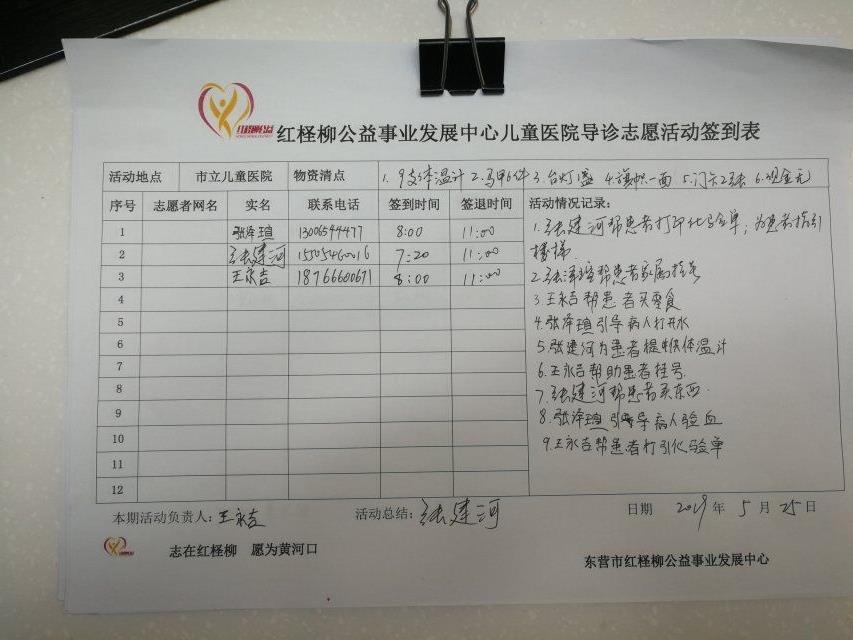 红柽柳公益事业发展中心儿童医院导诊志愿活动签到表
活动地点 市立儿童医院 物资清点 1.9支体温计 2.马甲6件 3.台灯1盏 4.旗帜一面 5.门卡2张 6.现金元
序号 志愿者网名 实名 联系电话 签到时间 签退时间 活动情况记录:
1 张泽瑄 13006594477 8:00 11:00
2 张建河 15505460016 7:20 11:00
3 王永吉 18766600671 8:00 11:00
4
5
6
7
8
9
10
11
12
1.张建河帮患者打印化验单,为患者指引
楼梯
2.张泽瑄帮患者家属挂号
3.王永吉帮患者买零食
4.张泽瑄引导病人打开水
5.张建河为患者提供体温计
6.王永吉帮助患者挂号
7.张建河帮患者买东西
8.张泽瑄引导病人验血
9.王永吉帮患者打引化验单
本期活动负责人:王永吉 活动总结:张建河 日期 2019年 5月 25日
志在红柽柳 愿为黄河口
东营市红柽柳公益事业发展中心